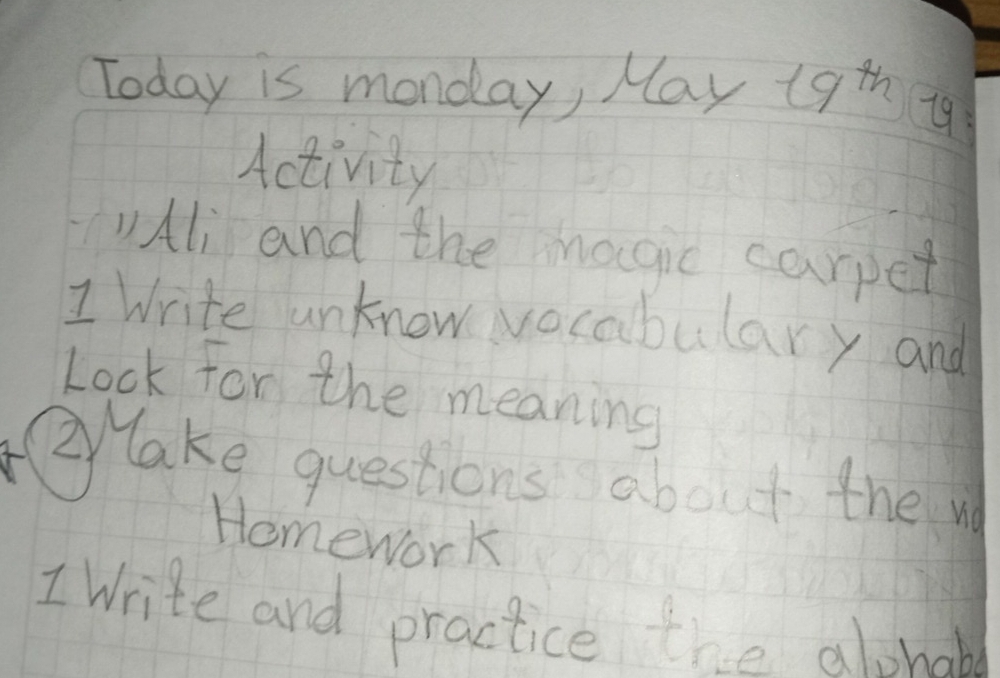 Today is monday, May 19th
Activity
"Ali and the magic carpet
1 Write unknow vocabulary and
Lock for the meaning
2) Make questions about the
Homework
1 Write and practice the